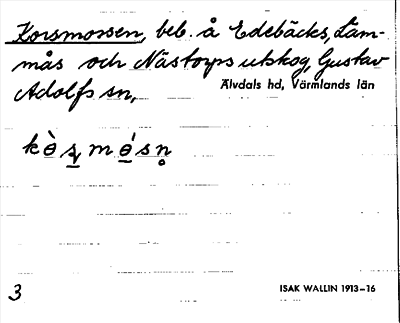 Korsmossen, beb. å Edebäcks, Läm-
mås och Nästorps utskog, Gustav
Adolfs sn,
Älvdals hd, Värmlands län
3
ISAK WALLIN 1913–16